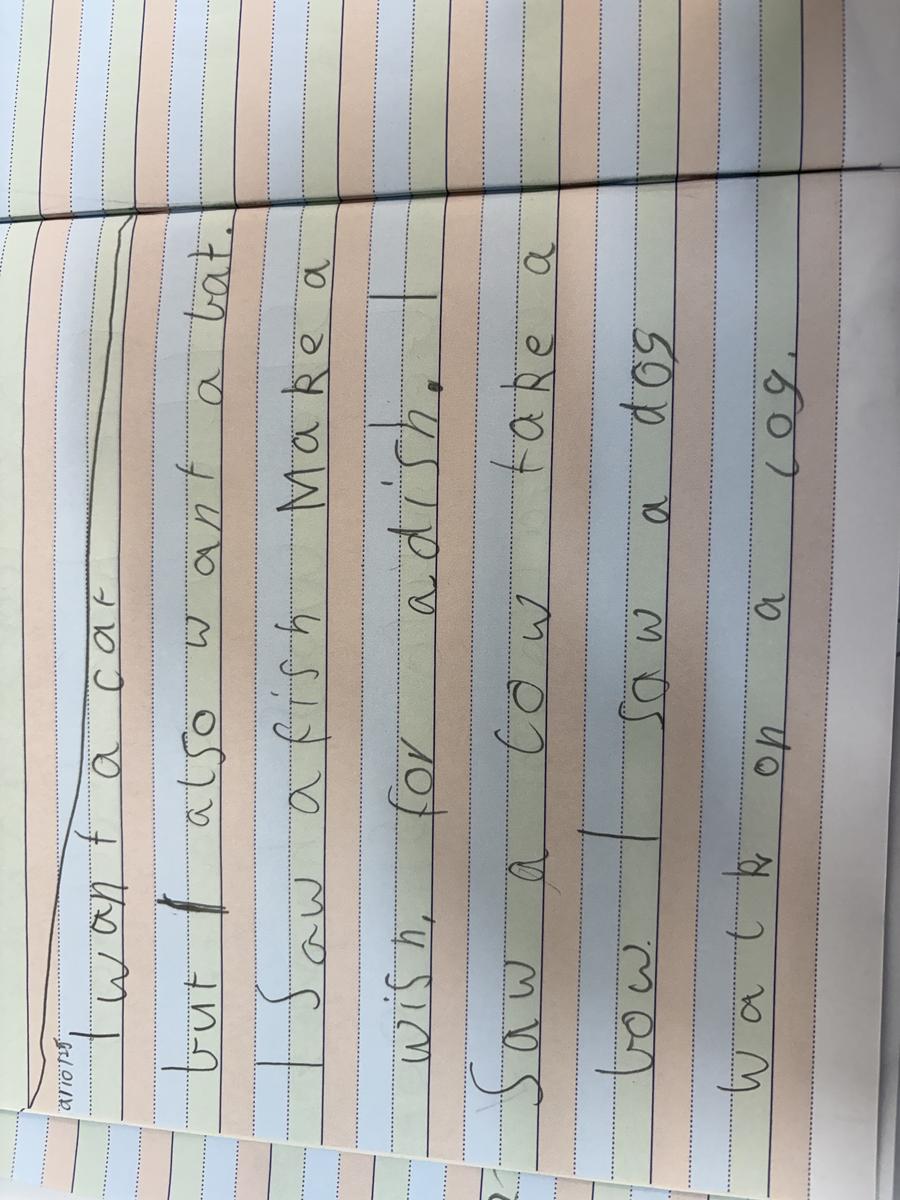 I want a cat
but I also want a bat.
I Saw a fish Make a
wish, for a dish. I
Saw a Cow take a
bow. I saw a dog
walk on a log.